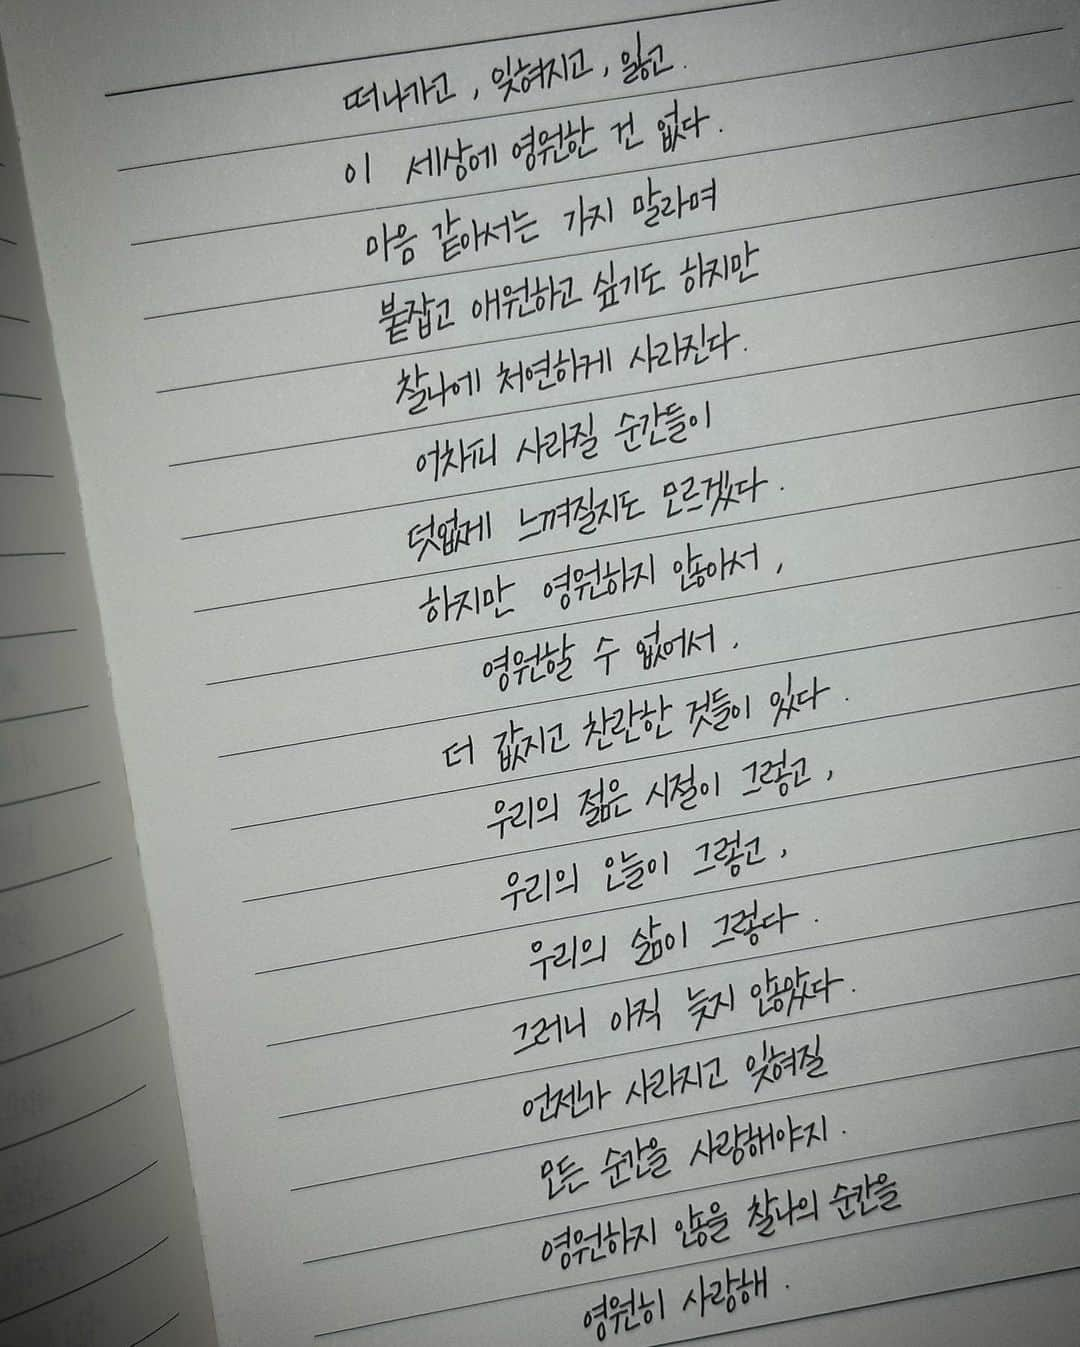 떠나가고, 잊혀지고, 잃고.
이 세상에 영원한 건 없다.
마음 같아서는 가지 말라며
붙잡고 애원하고 싶기도 하지만
찰나에 처연하게 사라진다.
어차피 사라질 순간들이
덧없게 느껴질지도 모르겠다.
하지만 영원하지 않아서,
영원할 수 없어서.
더 값지고 찬란한 것들이 있다.
우리의 젊은 시절이 그렇고,
우리의 오늘이 그렇고,
우리의 삶이 그렇다.
그러니 아직 늦지 않았다.
언젠가 사라지고 잊혀질
모든 순간을 사랑해야지.
영원하지 않을 찰나의 순간을
영원히 사랑해.